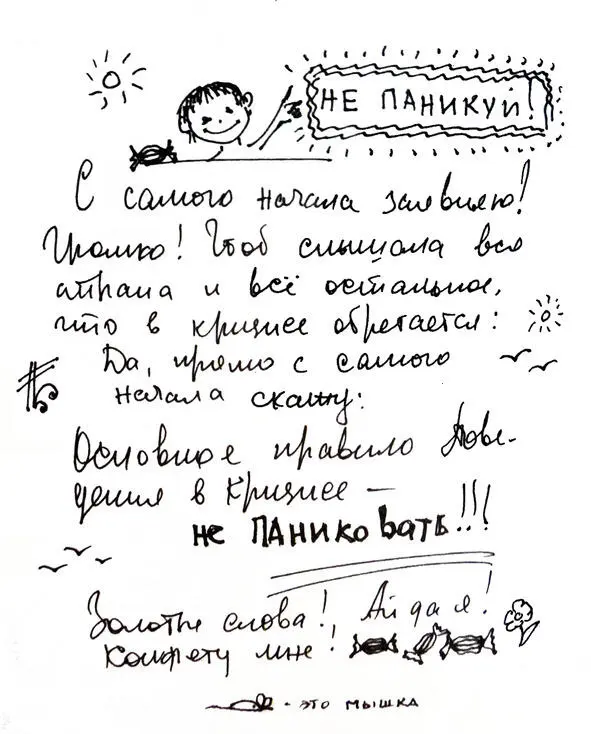 НЕ ПАНИКУЙ!
С самого начала заявляю!
Громко! Чтоб слышала вся
страна и всё остальное,
что в кризисе обретается:
Да, прямо с самого
начала скажу:
Основное правило пове-
дения в кризисе —
не ПАНИКОВАТЬ!!!
Золотые слова! Ай да я!
Конфету мне!
- это мышка